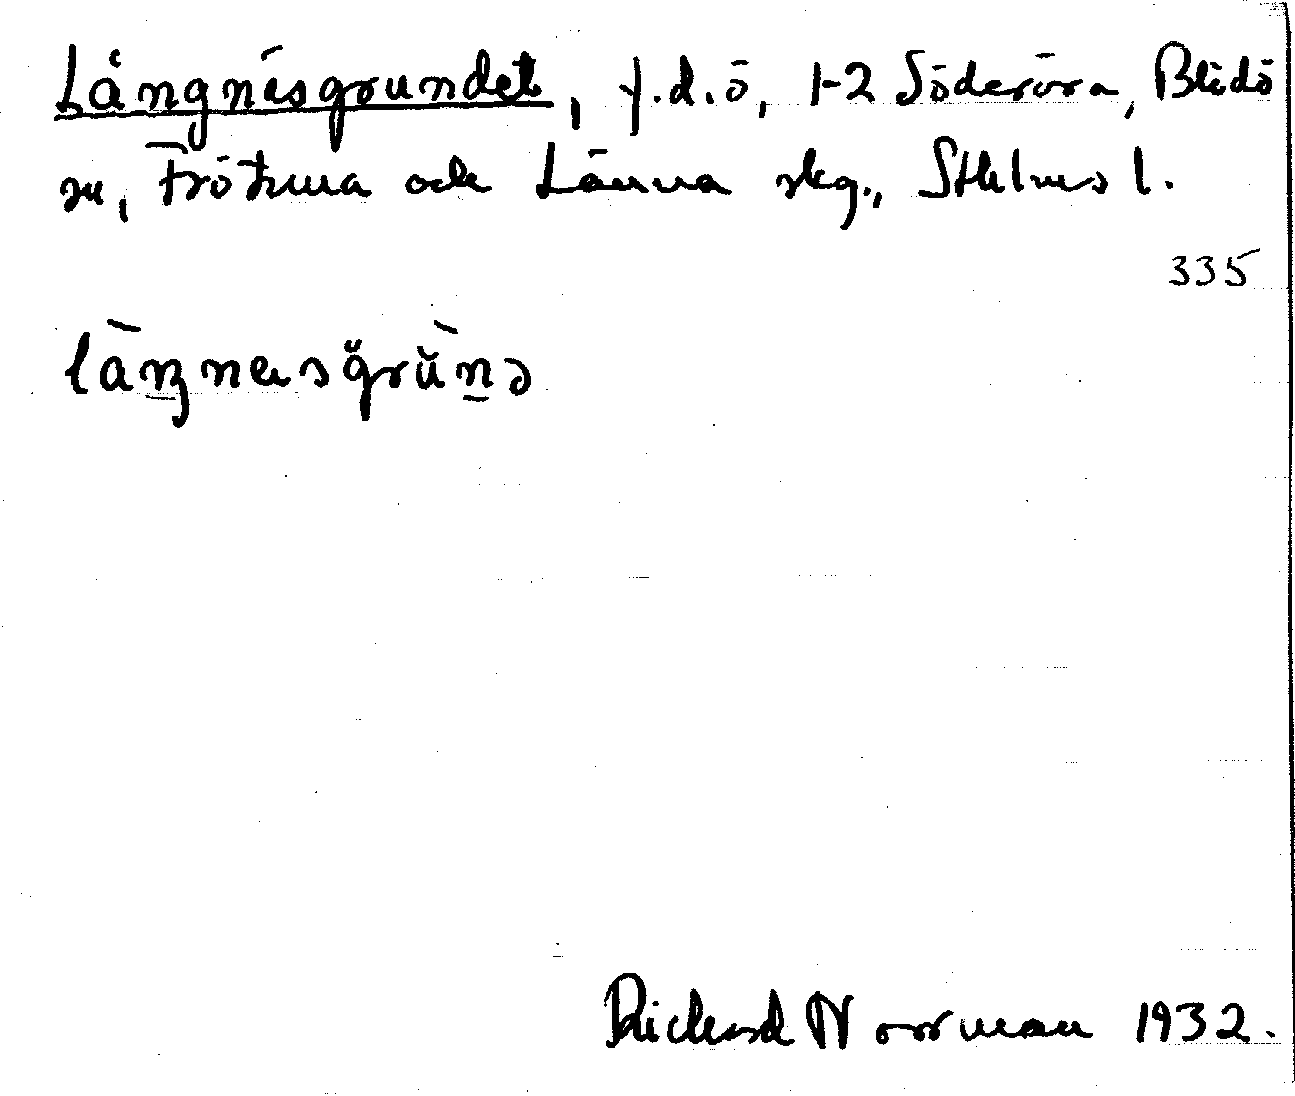 Långnäsgrundet, f.d.ö, 1-2 Söderöra, Blidö
sn, Frötuna och Länna skg., Sthlms l.
335
Rickard Norrman 1932.